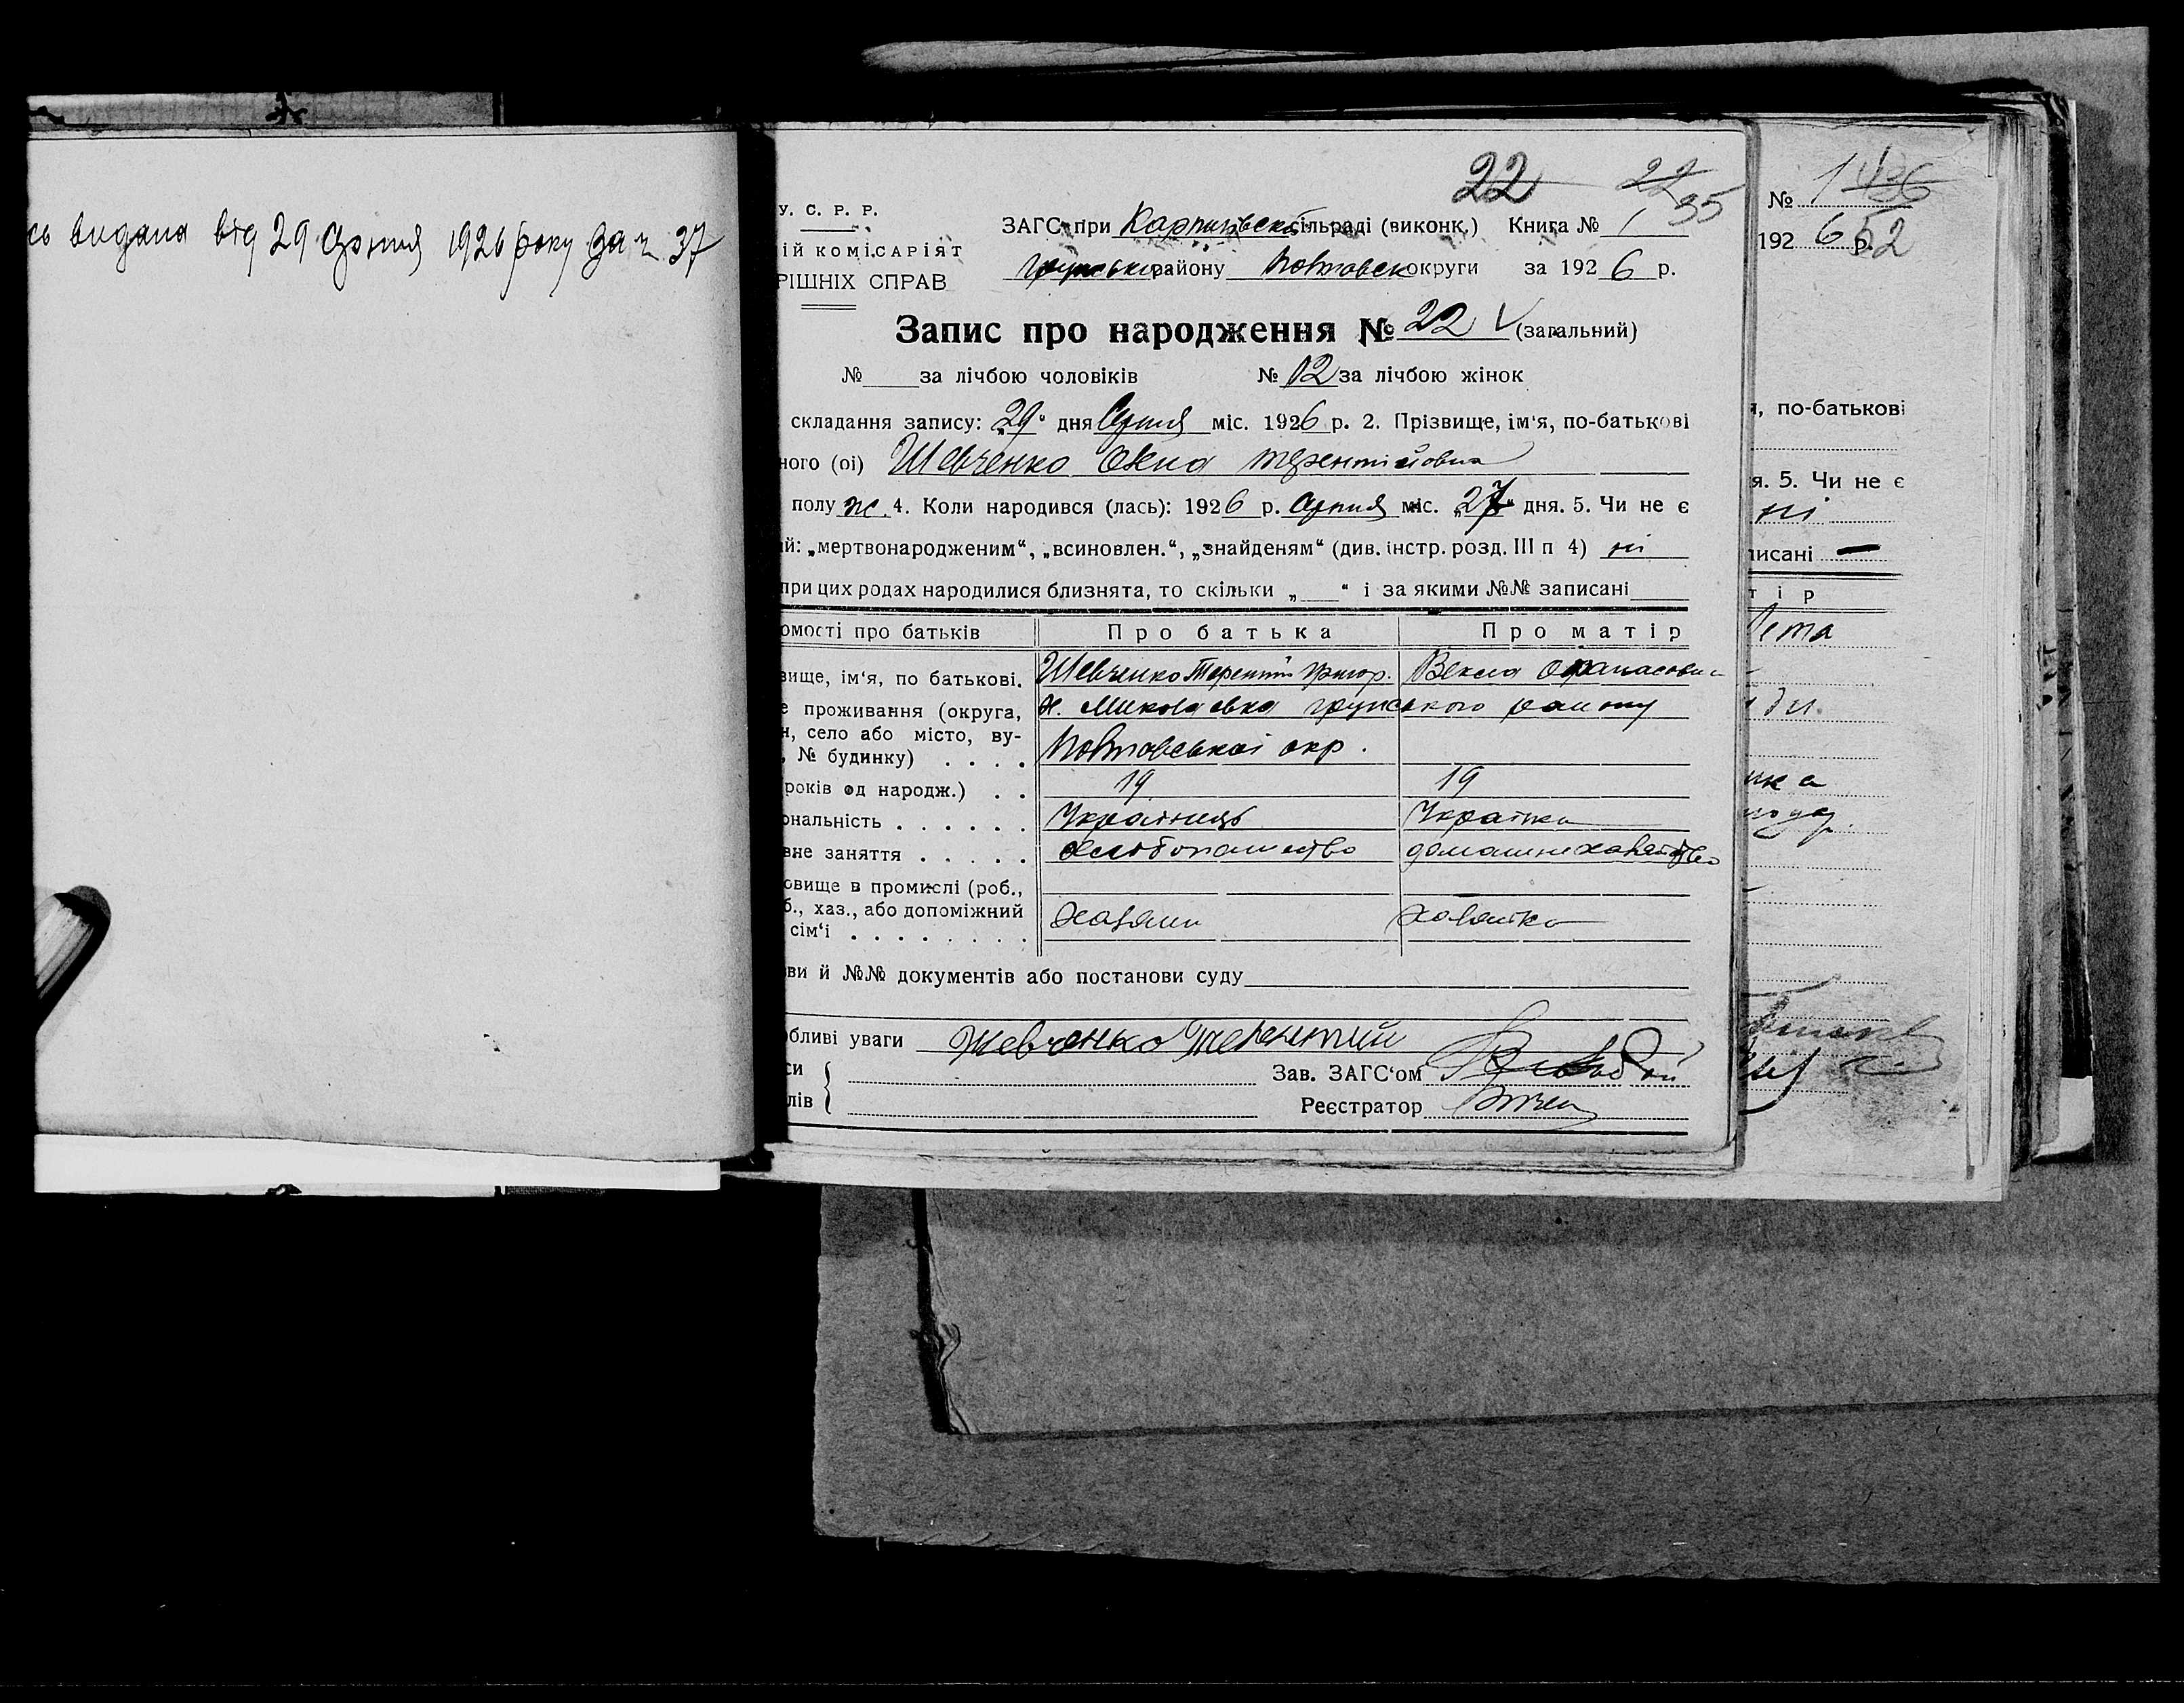 сь видана від 29 Серпня 1926 року за ч. 37
22 22
35
У. С. Р. Р.
ЗАГС при Карпилівські сільраді (виконк.) Книга № 1
ІЙ КОМІСАРІЯТ
грунського району Полтавськ округи за 1926 р.
РІШНІХ СПРАВ
Запис про народження № 22 (загальний)
№ за лічбою чоловіків № 12 за лічбою жінок
складання запису: „29“ дня Серпня міс. 1926 р. 2. Прізвище, ім‘я, по-батькові
ного (ої) Шевченко терентійовна
полу ж. 4. Коли народився (лась): 1926 р. Серпня міс. „27“ дня. 5. Чи не є
ий: „мертвонародженим“, „всиновлен.“, „знайденям“ (див. інстр. розд. III п 4) ні
при цих родах народилися близнята, то скільки „ “ і за якими №№ записані
омості про батьків Про батька Про матір
вище, ім‘я, по батькові. Шевченко Терентій Григор. Векла
е проживання (округа, х. Миколаевка грунського району
н, село або місто, ву-
№ будинку) . . . . Полтавської окр.
років од народж.) . . 19 19
ональність . . . . . . Українець Українка
вне заняття . . . . . хліборобство домашнє
овище в промислі (роб.,
б., хаз., або допоміжний хазяин хазяйка
сім‘ї . . . . . . . .
ви й №№ документів або постанови суду
бливі уваги Шевченко Терентий
си
Зав. ЗАГС‘ом
лів Реєстратор
№ 1 436
1926 р. 52
я, по-батькові
я. 5. Чи не є
ні
писані —
тір